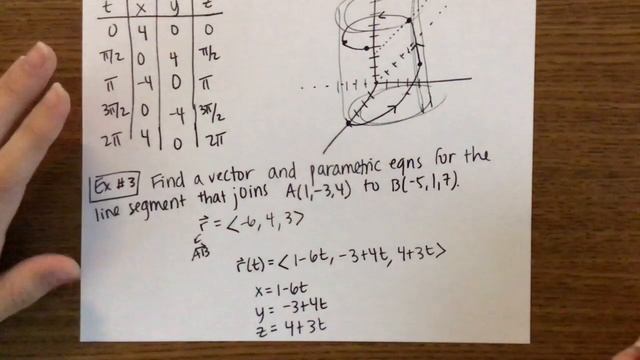 t x y z
0 4 0 0
π/2 0 4 π/2
π -4 0 π
3π/2 0 -4 3π/2
2π 4 0 2π
Ex #3 Find a vector and parametric eqns for the
line segment that joins A(1,-3,4) to B(-5,1,7).
r⃗ = <-6, 4, 3>
AB⃗
r⃗(t) = <1-6t, -3+4t, 4+3t>
x = 1-6t
y = -3+4t
z = 4+3t